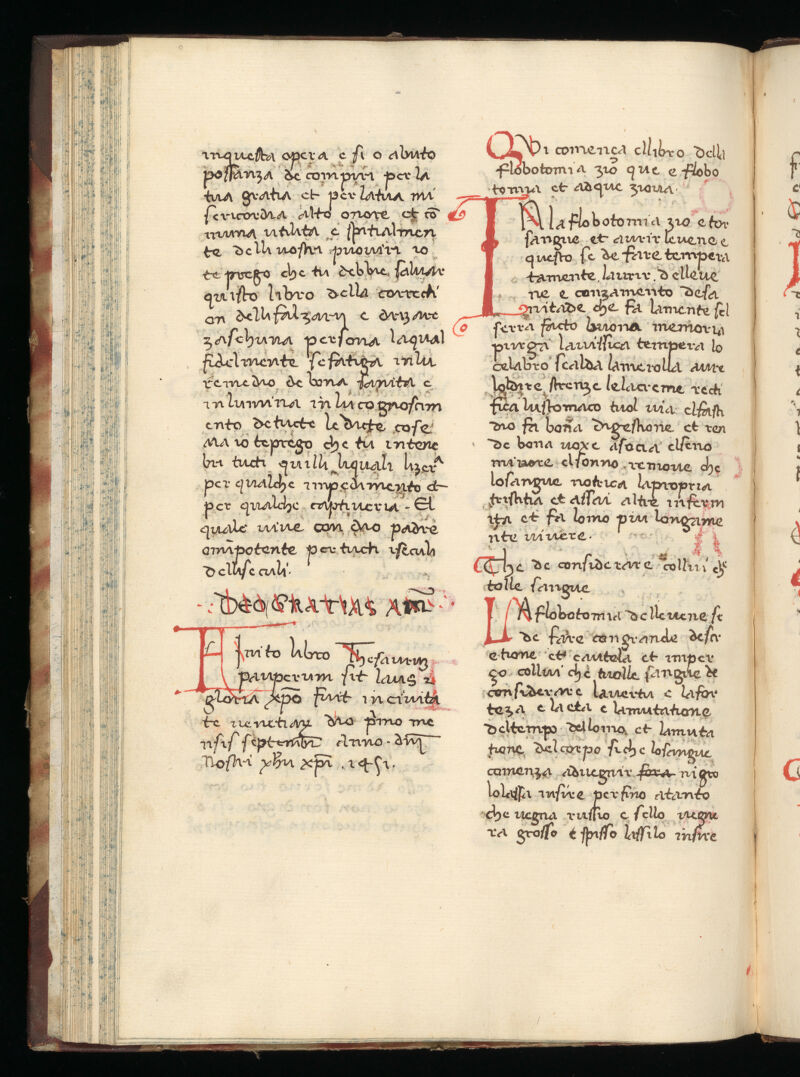 inquesta opera e si o abuto
possanza de compiri per la
tua gratia et per latua mi
sericordia alto onore et cō
muna utilita e spitialmen
te delli nostri puoviri io
te prego che tu debbie saluar
quisto libro della correcti
on delli falzarij e drizare
zaschuna persona laqual
fidelmente se fatiga inlu
remedio de bona sanita e
inlumina inlu cognoscim
ento de tucte le dicte cose
Ma io te prego che tu intene
bri tucti quilli liquali lizera
per qualche impedimento et
per qualche captiueria - El
quale uiue con dio padre
omnipotente per tucti iseculi
delli seculi.
DEO GRATIAS AM̄
Finito libro Thesauruz
pauperum sit laus z
gloria xp̄o fuit in ciuita
te uenetiaꝝ die p̄mo me
nsis septembr̄ Anno . dn̄i
Nostri yh̄u xp̄i . 1451.
QVi comenca ellibro della
flobotomia zio que e flobo
tomia et adque zioua.
INA la flobotomia zio e tor
sangue et aurir le uene e
questo se de fare tempera
tamente laurir delle ue
ne e conzamento de sa
nitade che fa la mente sel
serra facto buona memoria
purga lauissica tempera lo
celabro scalda lamerolla aure
loldire strenze le lacreme recti
fica lu stomaco tuol uia elfasti
dio fa bona digestione et ren
de bona uoxe asocia elseno
miuore elsonno remoue che
losangue notrica lapropria
tristitia et assai altre inferm
ita et fa lomo piu longame
nte uiuere.
Che de considerare collui che
tolle sangue
LA flobotomia delle uene se
de fare con grande descr
etione et cautela et imper
zo collui che tuolle sangue de
considerare lauertu e lafor
teza e la eta e lamutatione
deltempo dellomo et lamuta
tione del corpo siche losangue
comenza aduegnir fora nigro
lolassa insire perfino atanto
che uegna russio e sello uegne
ra grosso e spisso lassilo insire